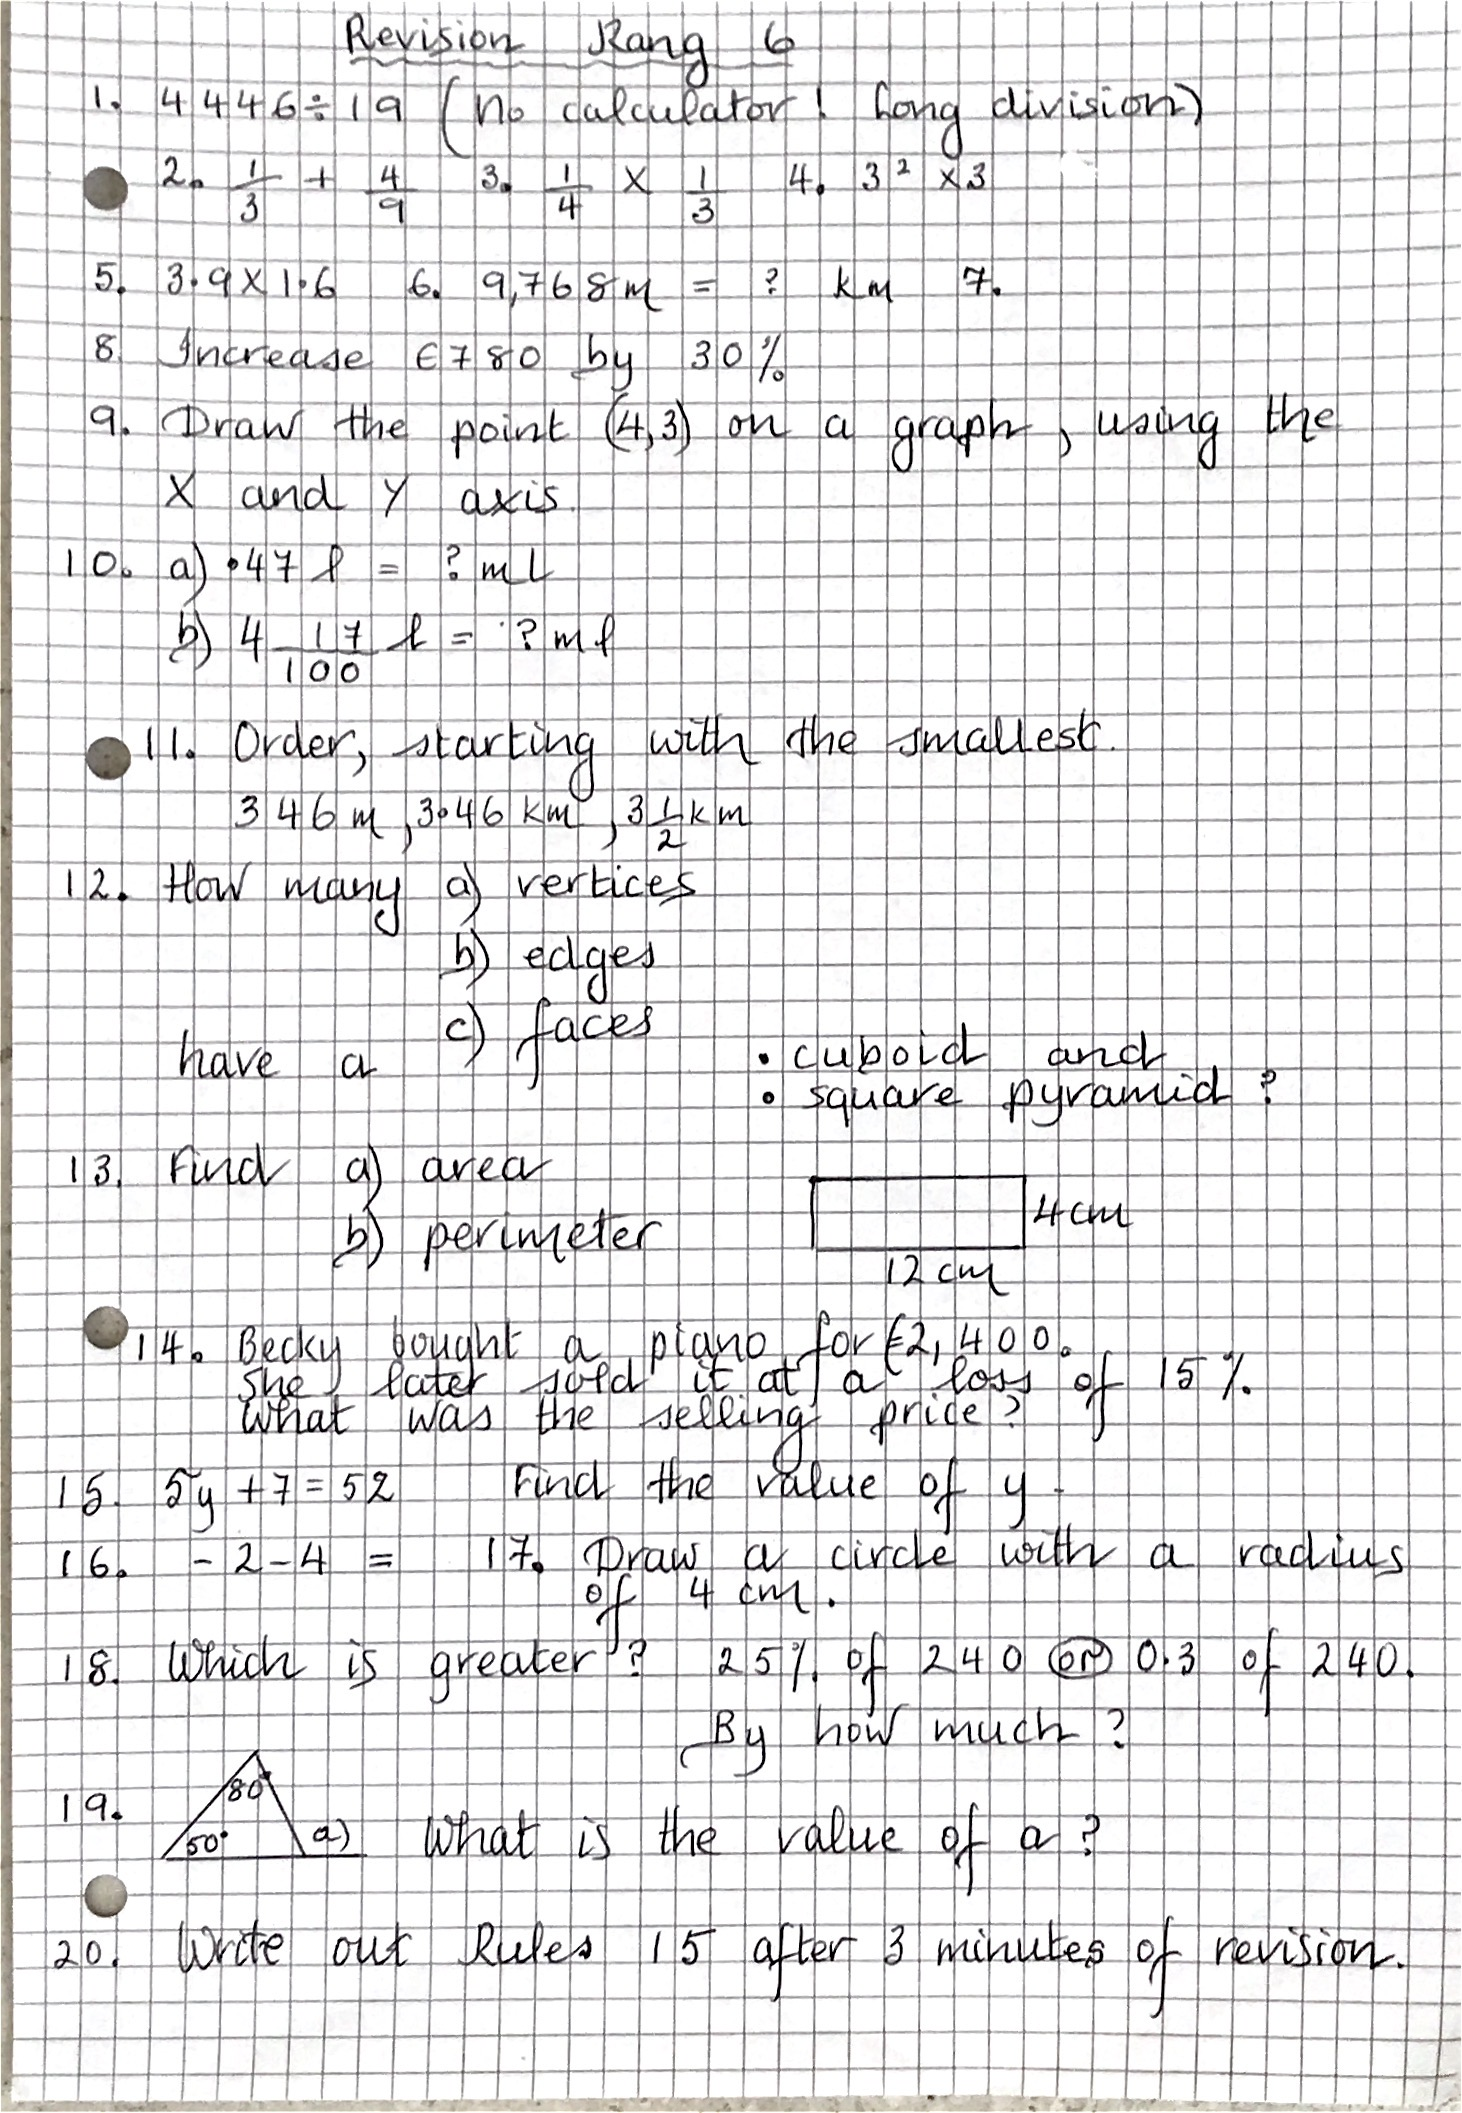 Revision Rang 6
1. 4446÷19 (No calculator! Long division)
2. 1/3 + 4/9 3. 1/4 x 1/3 4. 3² x3
5. 3.9x1.6 6. 9,768m = ? km 7.
8. Increase €780 by 30%
9. Draw the point (4,3) on a graph, using the
X and Y axis.
10. a) .47 l = ? ml
b) 4 17/100 l = ? ml
11. Order, starting with the smallest.
346m, 3.46 km, 3 1/2 km
12. How many a) vertices
b) edges
c) faces
have a • cuboid and
• square pyramid?
13. Find a) area
b) perimeter
4cm
12 cm
14. Becky bought a piano for €2,400.
She later sold it at a loss of 15%.
What was the selling price?
15. 5y +7=52 Find the value of y.
16. -2-4 = 17. Draw a circle with a radius
of 4 cm.
18. Which is greater? 25% of 240 or 0.3 of 240.
By how much?
80°
19. 50° a) What is the value of a?
20. Write out Rules 15 after 3 minutes of revision.